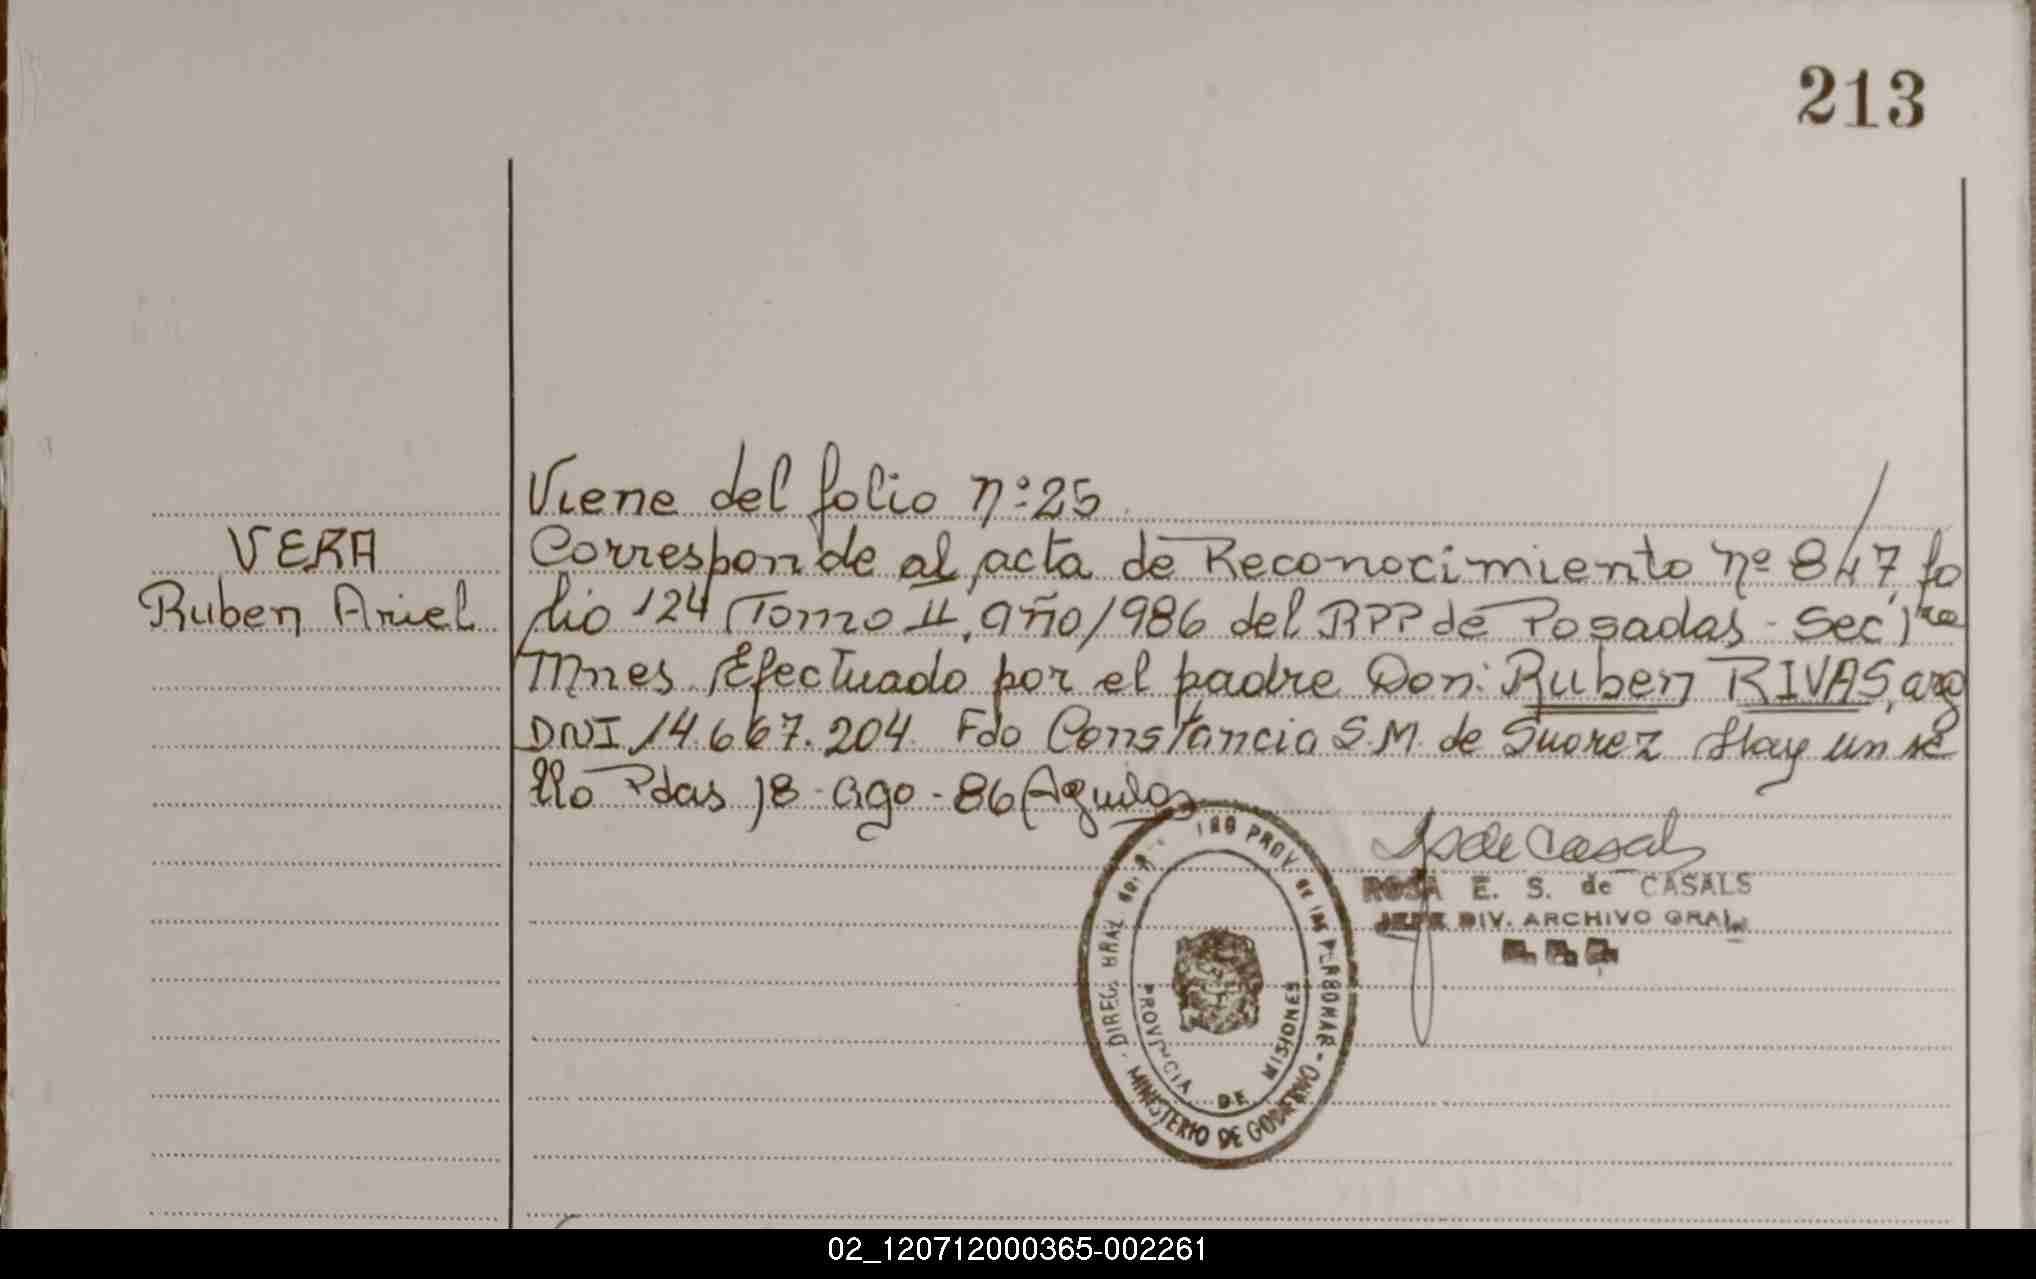 213
Viene del folio nº 25
VERA
Ruben Ariel
Corresponde al acta de Reconocimiento nº 847, fo
lio 124 Tomo II, año 1986 del RPP de Posadas - Sec 1ra
Mnes. Efectuado por el padre Don: Ruben RIVAS, arg
DNI 14.667.204. Fdo Constancia S.M. de Suarez Hay un se
llo Pdas 18 - Ago - 86
de Casals
ROSA E. S. de CASALS
JEFE DIV. ARCHIVO GRAL.
PROV. de las PERSONAS
MINISTERIO DE GOBIERNO
PROVINCIA DE MISIONES
02_120712000365-002261